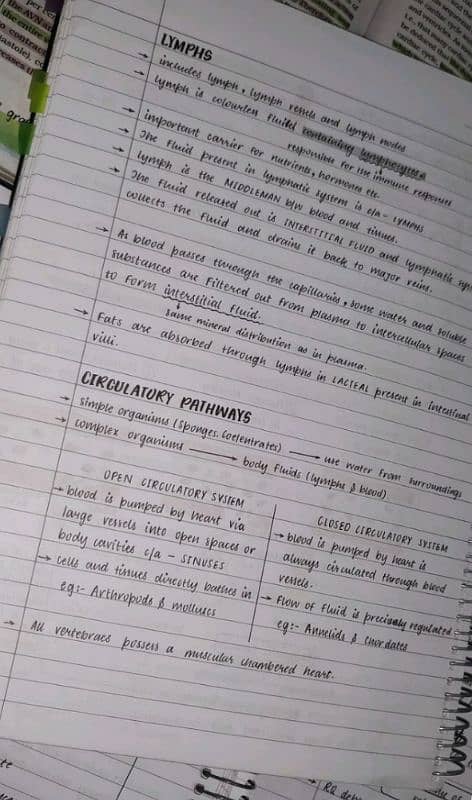 LYMPHS
→ includes lymph, lymph vessels and lymph nodes
→ lymph is colourless fluid containing lymphocytes
responsible for the immune responses
→ important carrier for nutrients, hormones etc.
→ The fluid present in lymphatic system is c/a - LYMPHS
→ lymph is the MIDDLEMAN b/w blood and tissues.
→ The fluid released out is INTERSTITIAL FLUID and lymphatic
collects the fluid and drains it back to major veins.
→ As blood passes through the capillaries, some water and soluble
substances are filtered out from plasma to intercellular spaces
to form interstitial fluid.
same mineral distribution as in plasma.
→ Fats are absorbed through lymphs in LACTEAL present in intestinal
villi.
CIRCULATORY PATHWAYS
→ simple organisms (Sponges, Coelentrates) → use water from surroundings
→ complex organisms → body fluids (lymphs & blood)
OPEN CIRCULATORY SYSTEM
→ blood is pumped by heart via
large vessels into open spaces or
body cavities c/a - SINUSES
→ cells and tissues directly bathes in
eg:- Arthropods & molluscs
CLOSED CIRCULATORY SYSTEM
→ blood is pumped by heart is
always circulated through blood
vessels.
→ Flow of fluid is precisely regulated
eg:- Annelids & Chordates
→ All vertebraes possess a muscular chambered heart.